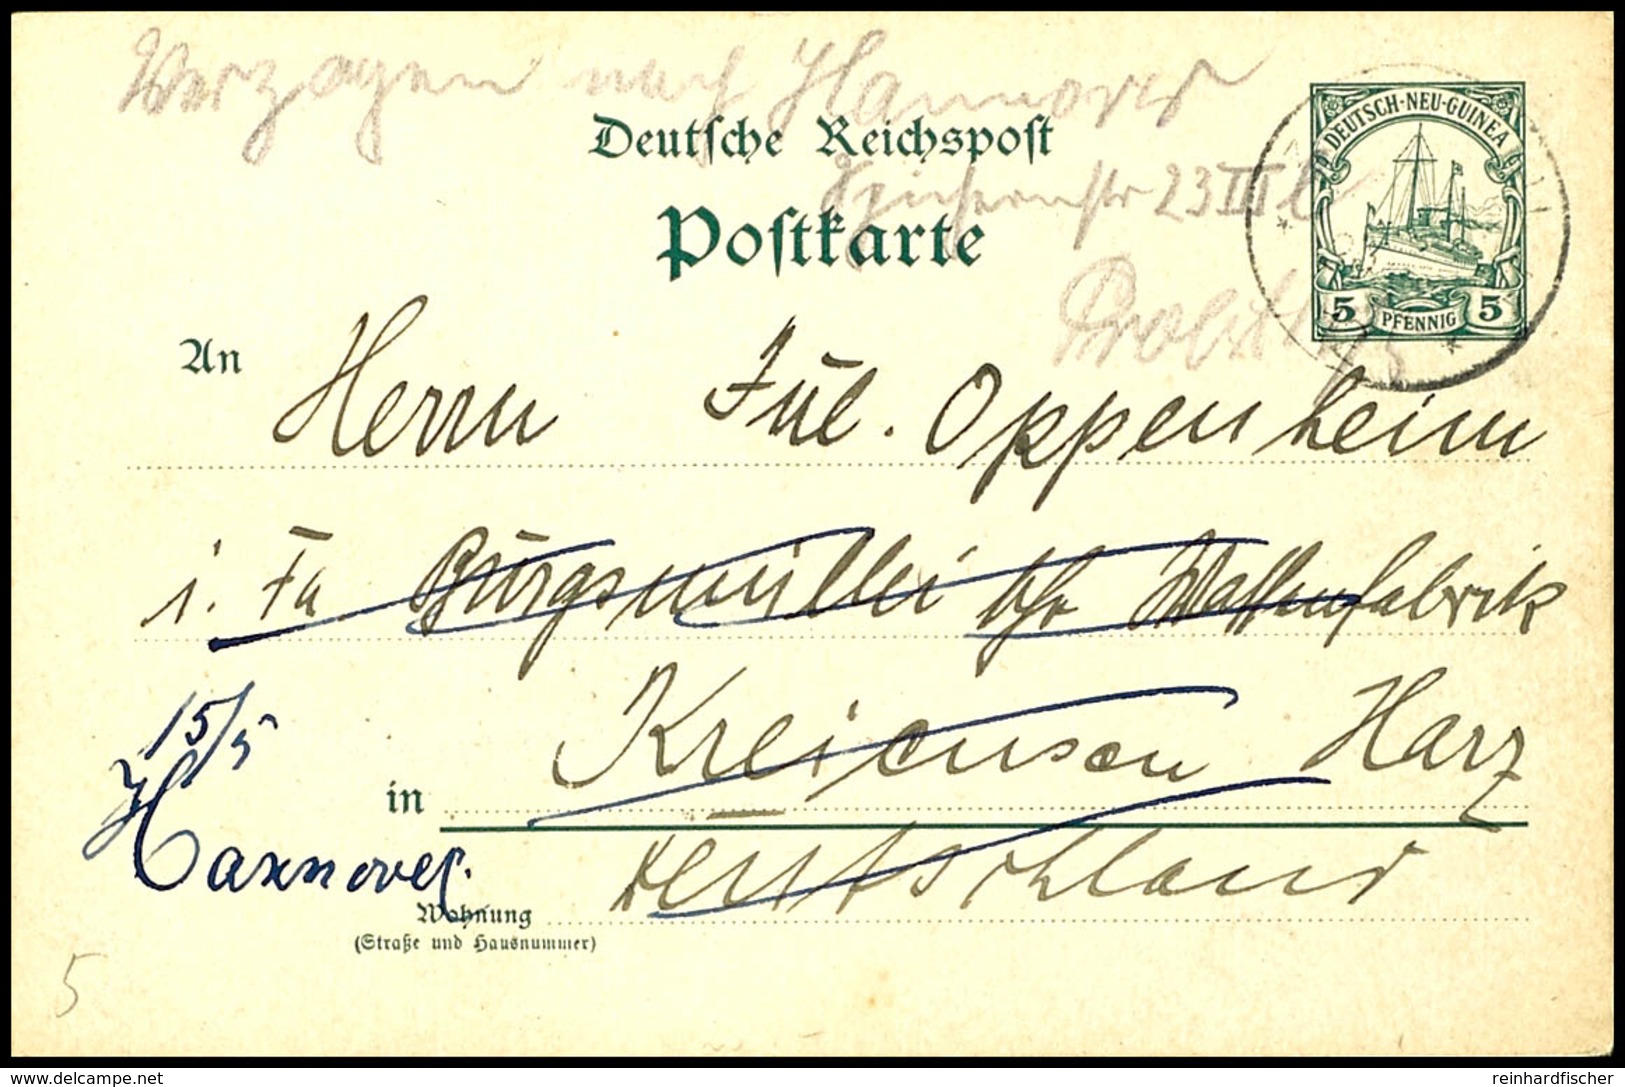 Verzogen nach Hannover
Deutsche Reichspost
23 III l
Postkarte
DEUTSCH-NEU-GUINEA
5 PFENNIG 5
An Herrn Jul. Oppenheim
i. Fa Burgsmüller Waffenfabrik
15/5
Kreiensen Harz
in
Hannover.
Deutschland
Wohnung
(Straße und Hausnummer)
5
delcampe.net
reinhardfischer